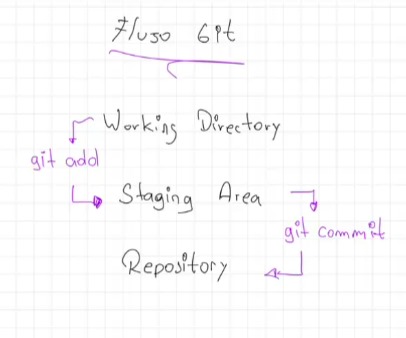 Flujo Git
Working Directory
git add
Staging Area
git commit
Repository